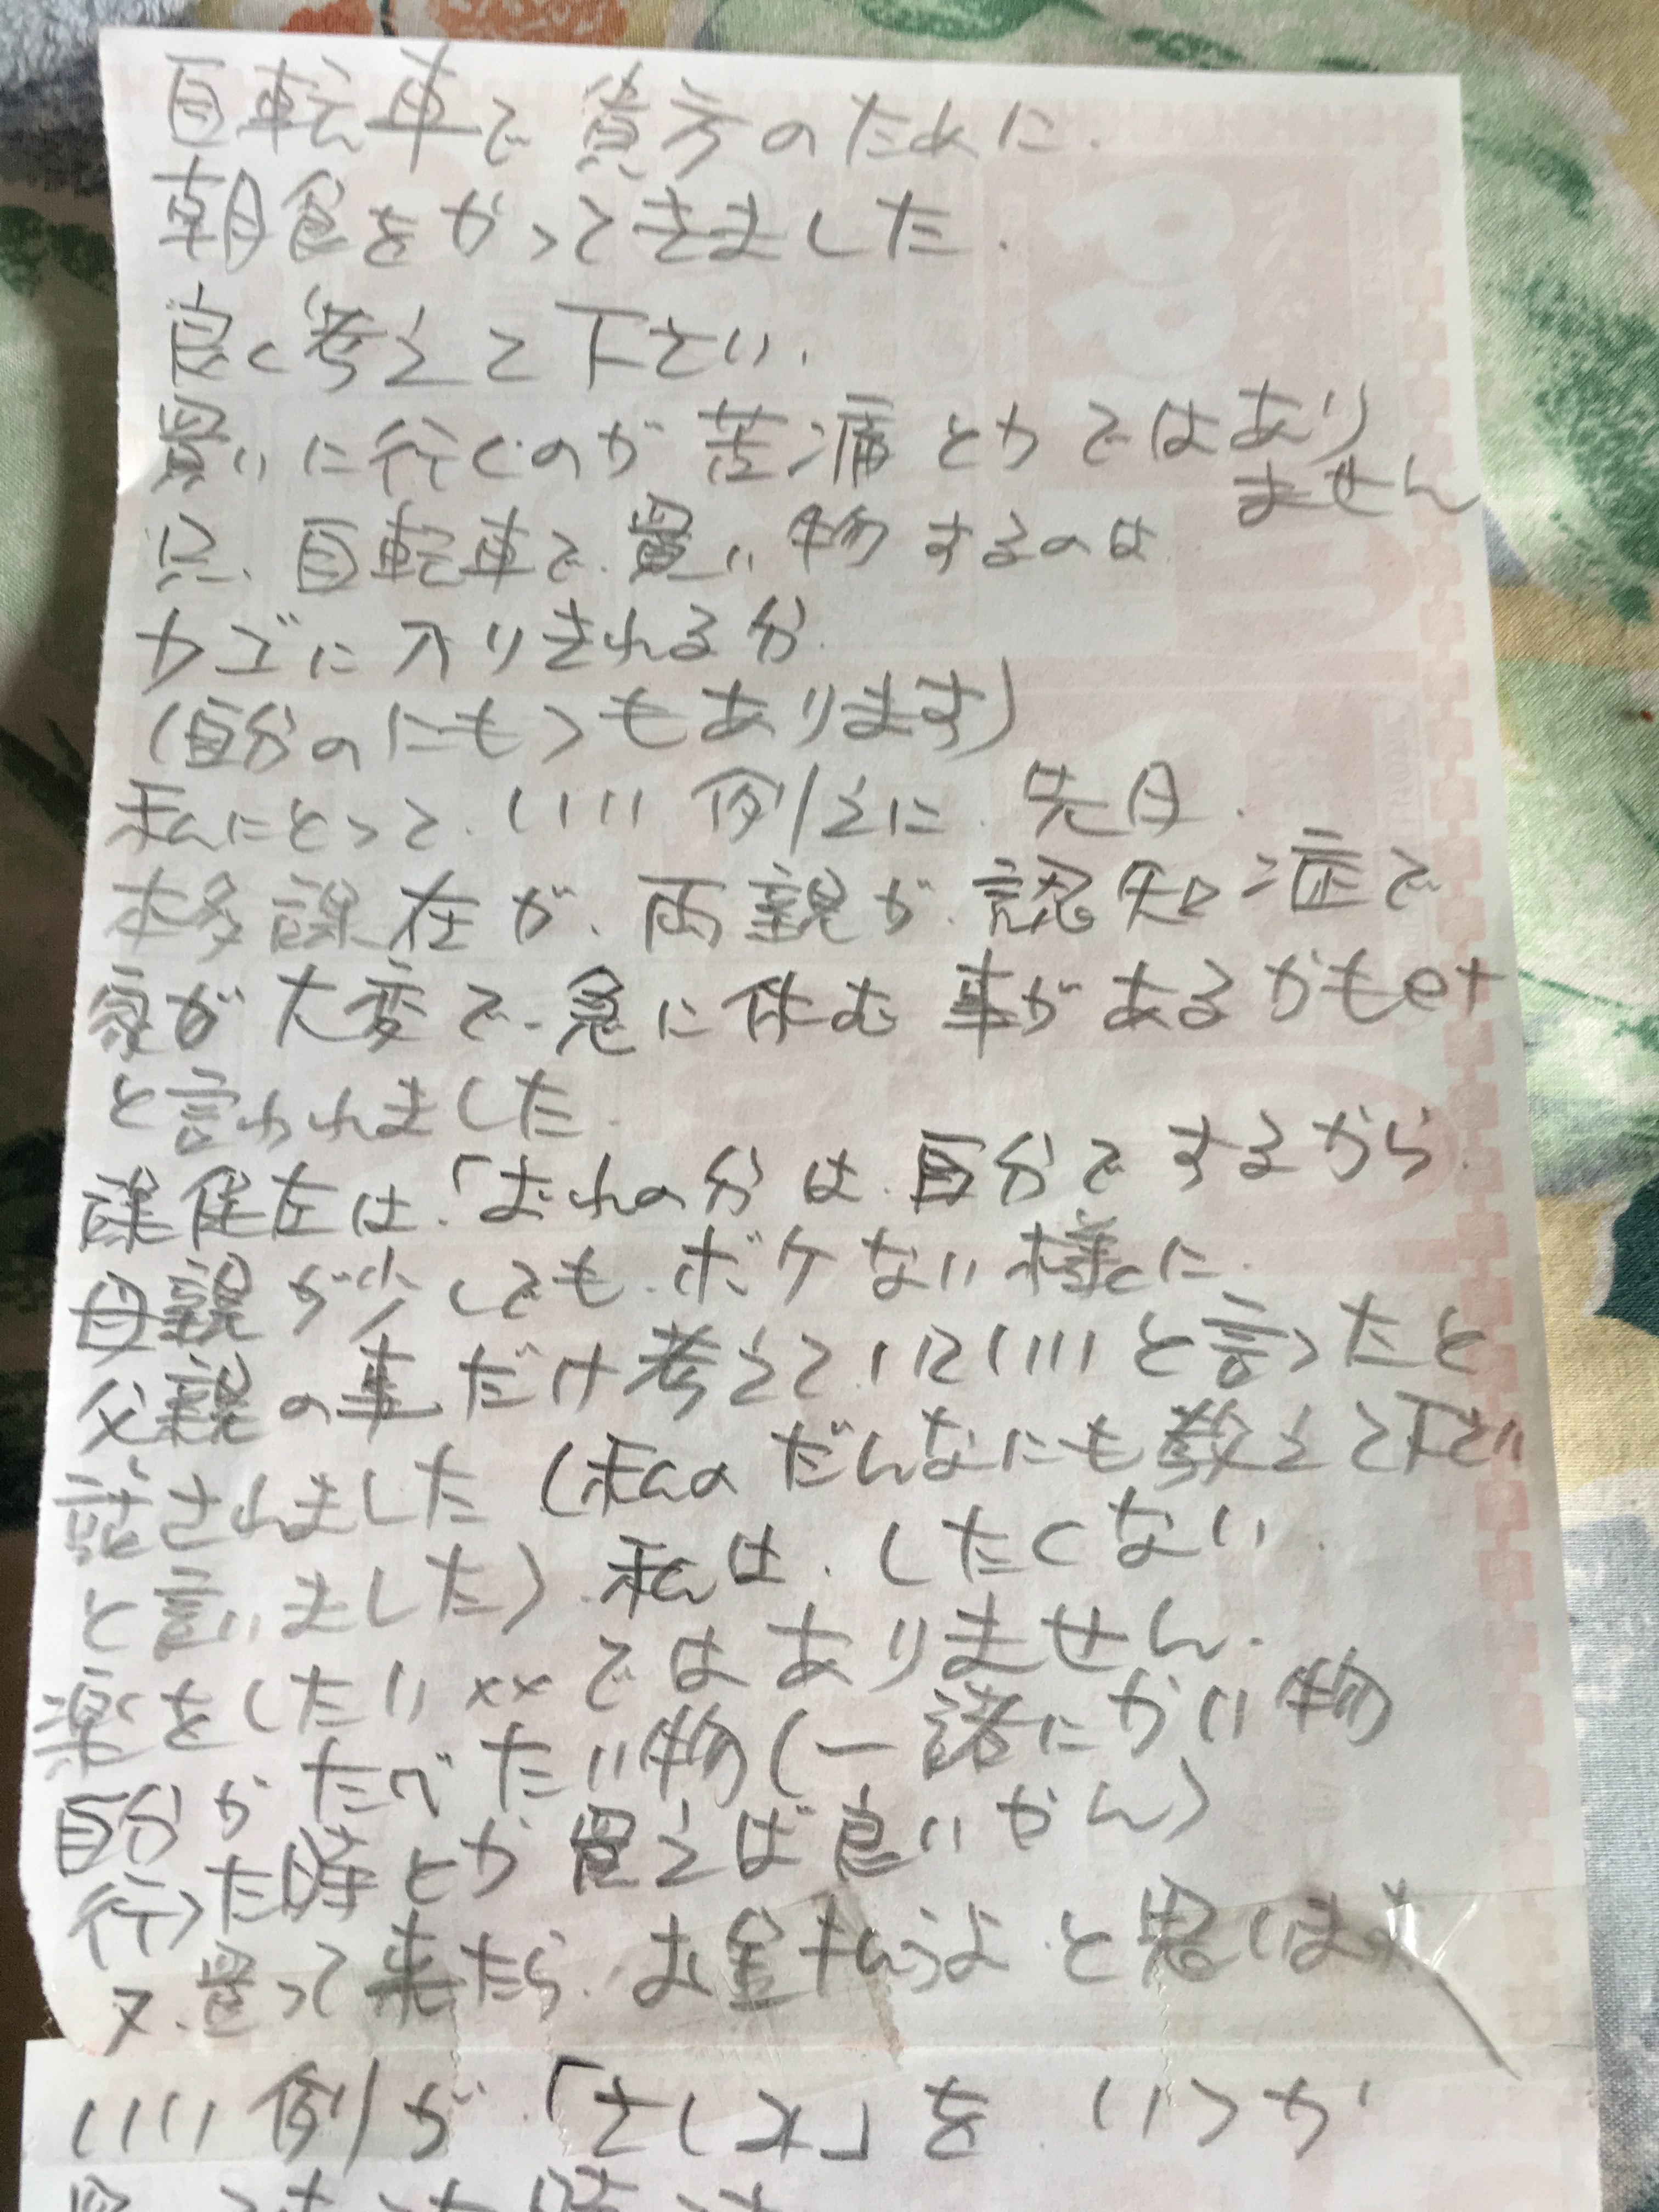 自転車で貴方のために.
朝食をかってきました.
良く考えて下さい.
買いに行くのが苦痛とかではあり
ません
只、自転車で、買い物するのは
カゴに入りきれる分.
(自分のにもつもあります)
私にとって、いい例えに、先月.
本多課在が、両親が、認知症で
家が大変で、急に休む事があるかもet
と言われました.
課在は、「おれの分は、自分でするから.
母親が少しでも、ボケない様に.
父親の事だけ考えていていいと言ったと
話されました(私のだんなにも教えて下さい
と言いました).私は、したくない.
楽をしたい××ではありません.
自分がたべたい物(一諸にかい物
行った時とか買えば良いかん)
又、買って来たら、お金はらうよ、と思います
いい例が、「さしみ」を、いつか